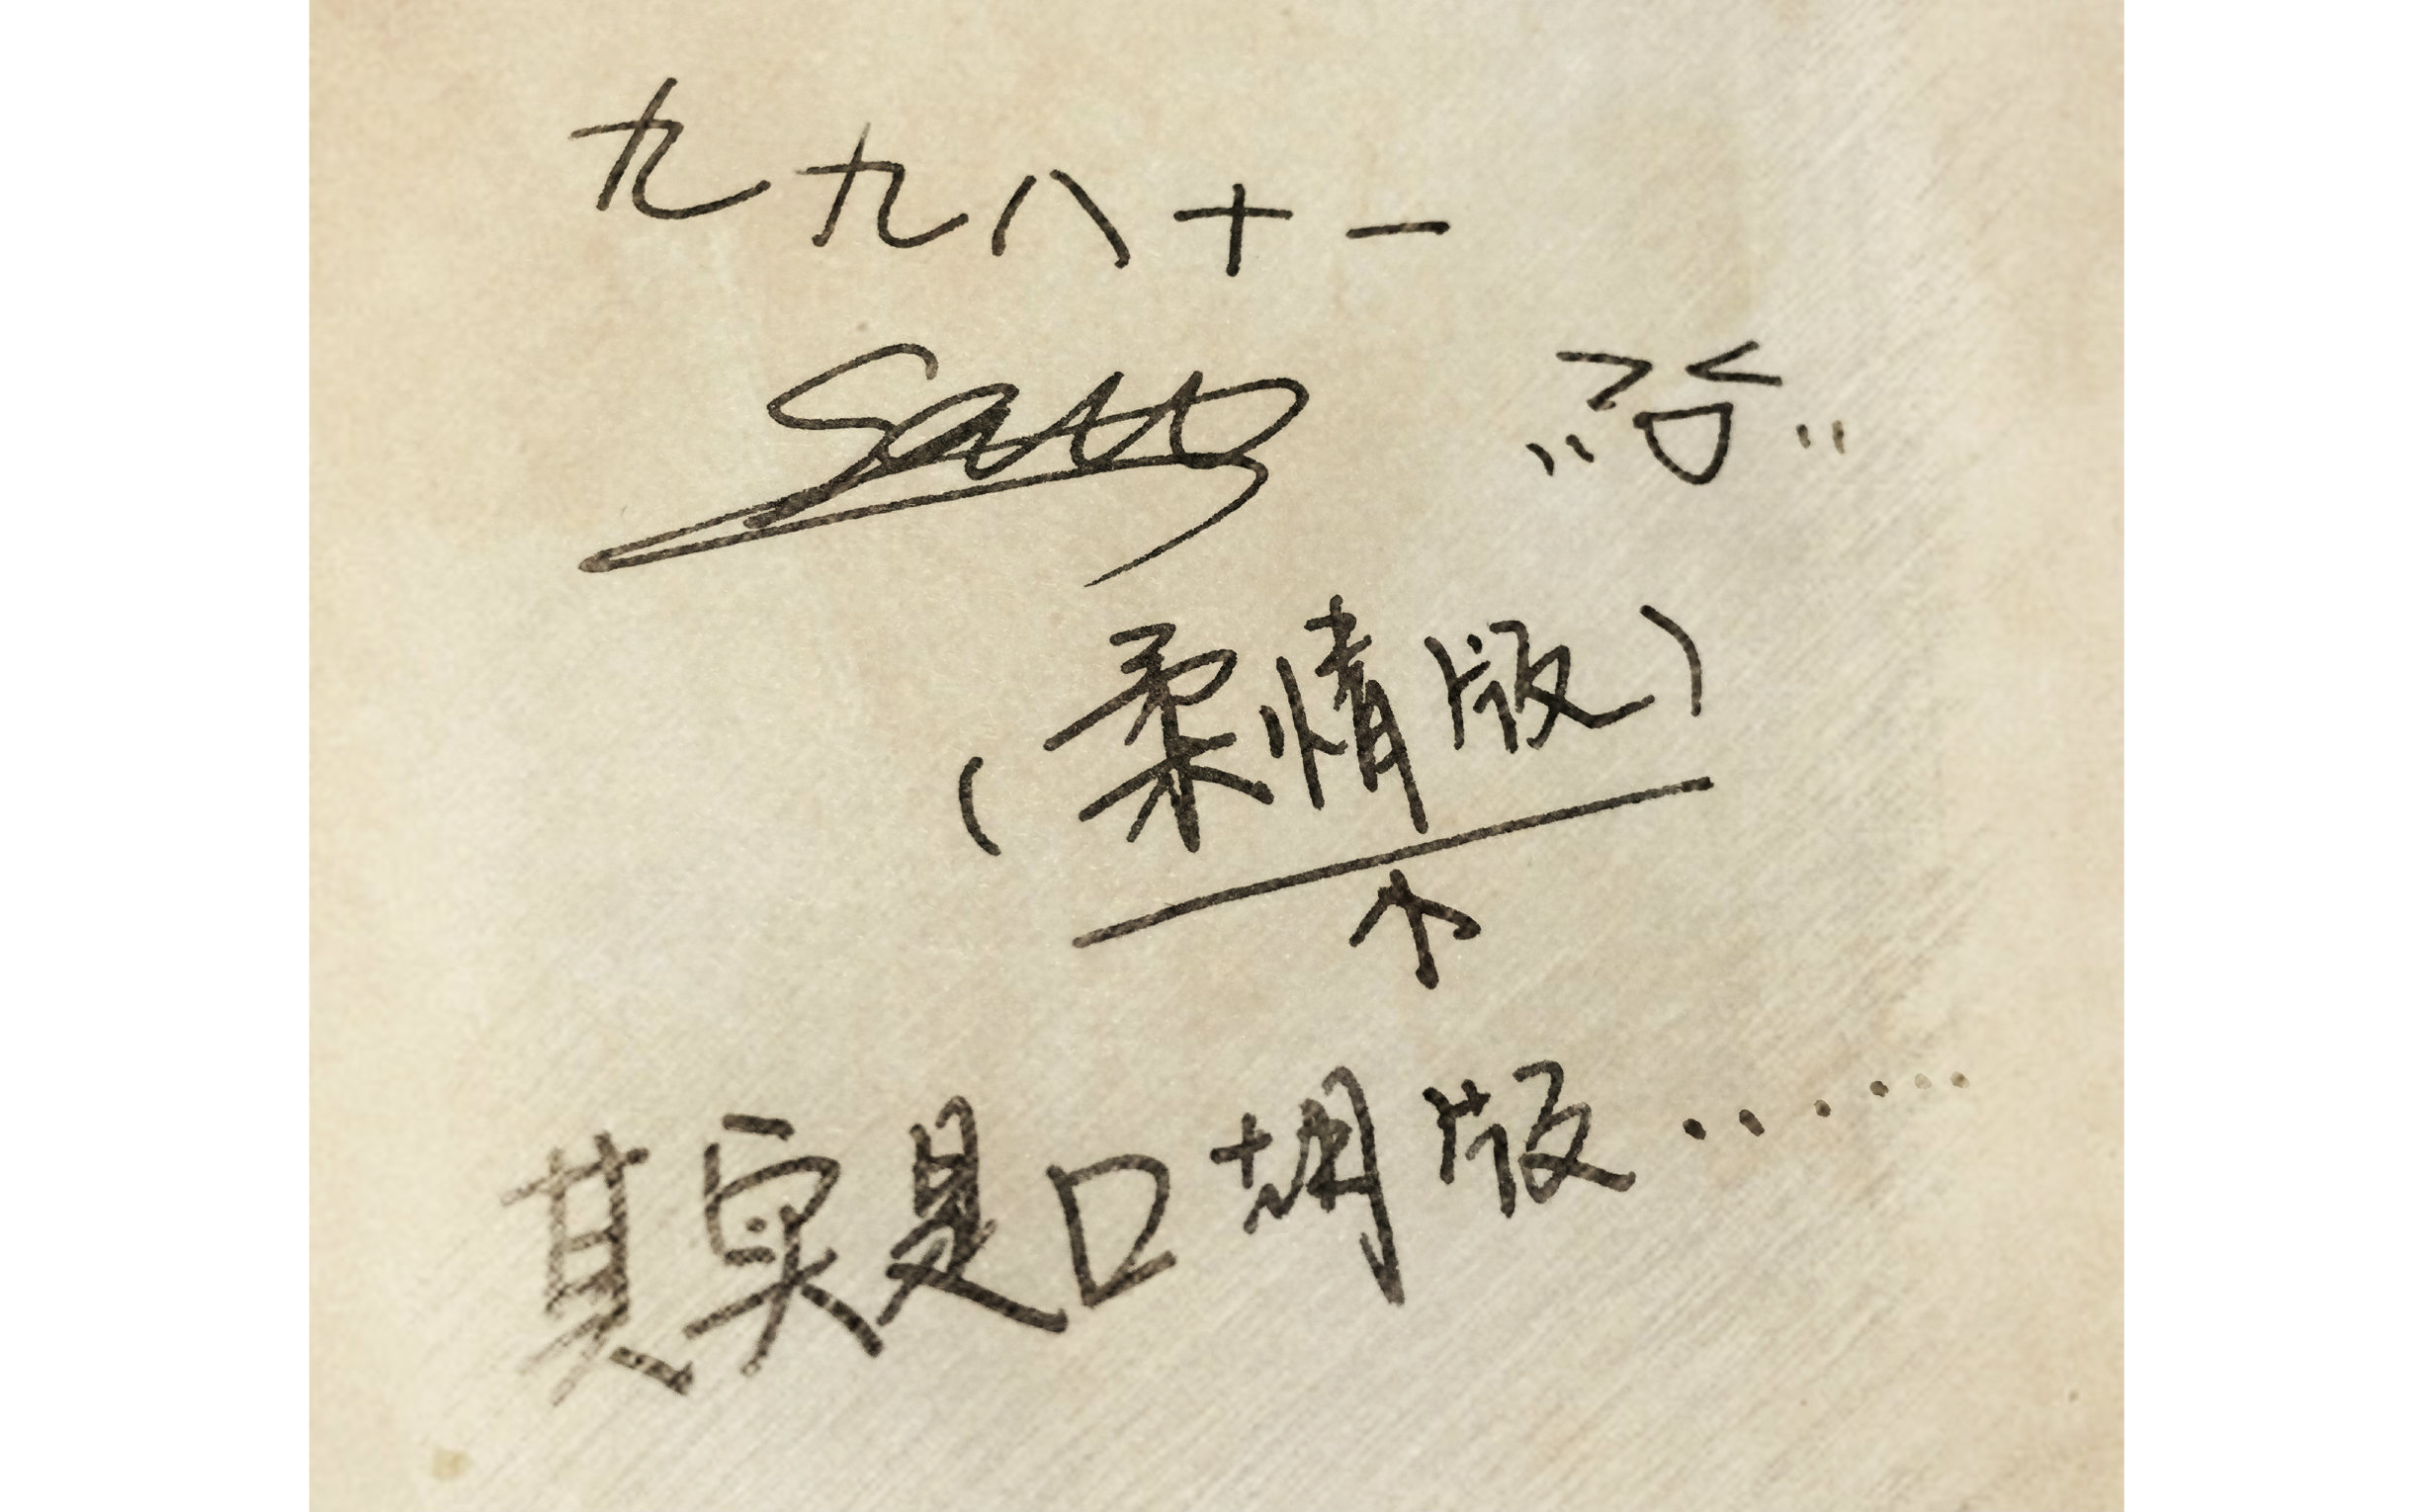 九九八十一
(柔情版)
其实是口胡版……